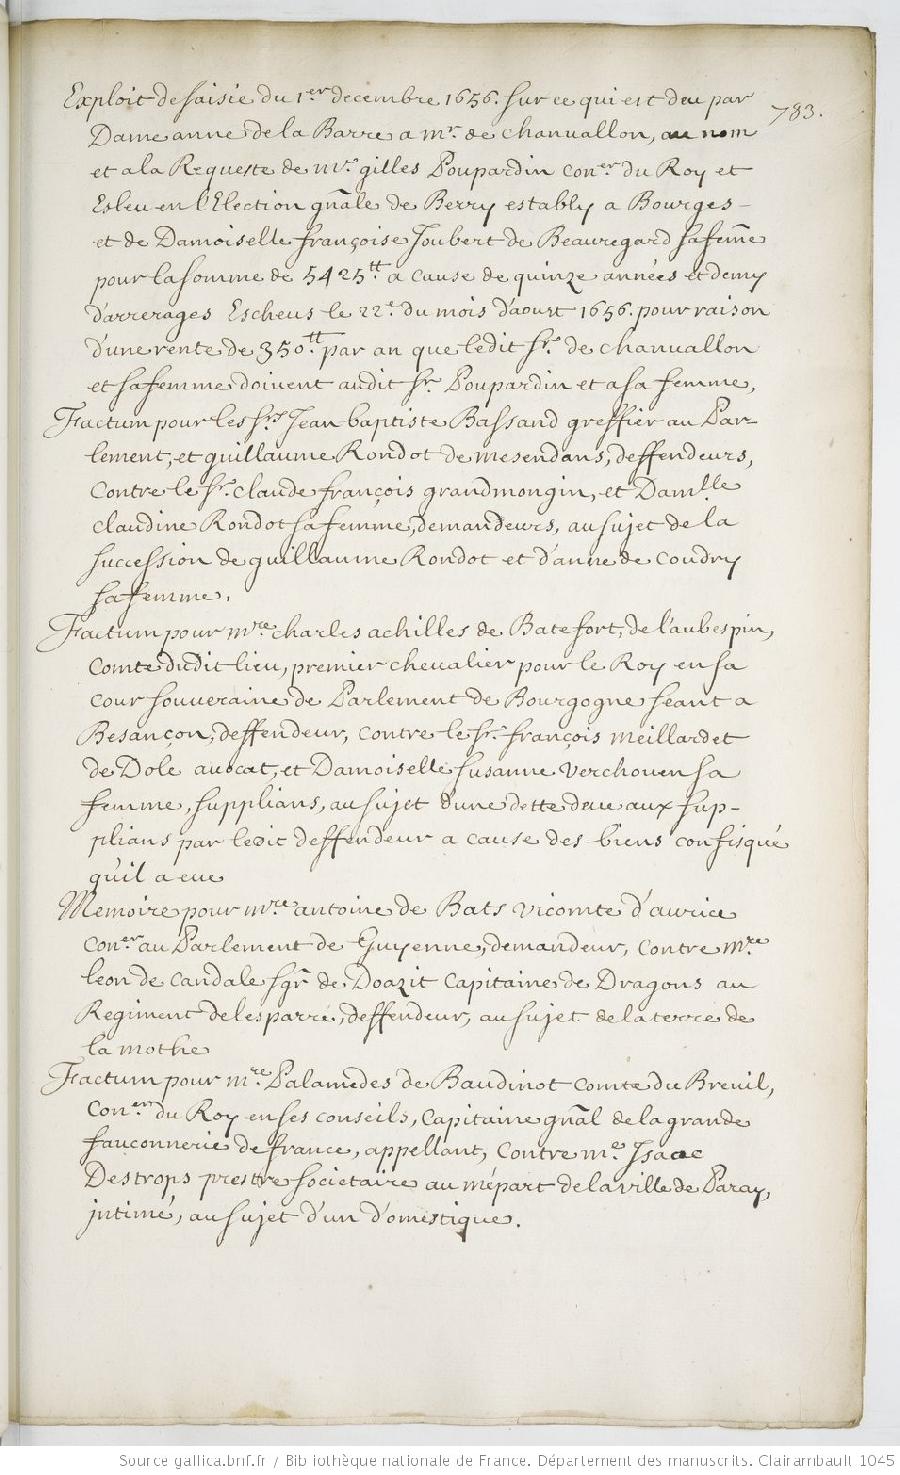 783.
Exploit de saisie du 1.er decembre 1656. sur ce qui est deu par
Dame anne de la Barre a mr. de chanvallon, au nom
et a la Requeste de mr. gilles Poupardin con.er du Roy et
Esleu en l'Election gñale de Berry establÿ a Bourges
et de Damoiselle françoise Joubert de Beauregard sa feme
pour la somme de 5425tt a cause de quinze années et demy
d'arrerages Escheus le 22e. du mois d'aoust 1656. pour raison
d'une rente de 350tt. par an que ledit sr. de chanvallon
et sa femme doivent audit sr. Poupardin et a sa femme,
Factum pour les srs. Jean baptiste Bassand greffier au Par-
lement, et guillaume Rondot de mesendans, deffendeurs,
Contre le sr. claude françois grandmongin, et Dam.lle
claudine Rondot sa femme, demandeurs, au sujet de la
succession de guillaume Rondot et d'anne de Coudry
sa femme.
Factum pour mre. charles achilles de Batefort, de l'aubespin,
Comte dudit lieu, premier chevalier pour le Roy en sa
cour souveraine de Parlement de Bourgogne seant a
Besançon, deffendeur, contre le sr. françois meillardet
de Dole avocat, et Damoiselle susanne Verchoven sa
femme, supplians, au sujet d'une dette deue aux sup-
plians par ledit deffendeur a cause des biens confisqué
qu'il a eue
Memoire pour mre. antoine de Bats vicomte d'aurice
con.er au Parlement de Guyenne, demandeur, contre mre.
leon de candale sgr. de Doazit Capitaine de Dragons au
Regiment de lesparre, deffendeur, au sujet de la terre de
la mothe
Factum pour mre. Palamedes de Baudinot comte du Breuil,
con.er du Roy en ses conseils, Capitaine gñal de la grande
fauconnerie de france, appellant, contre me. Isaac
Destrops prestre societaire au mépart de la ville de Paray,
intimé, au sujet d'un domestique.
Source gallica.bnf.fr / Bibliothèque nationale de France. Département des manuscrits. Clairambault 1045